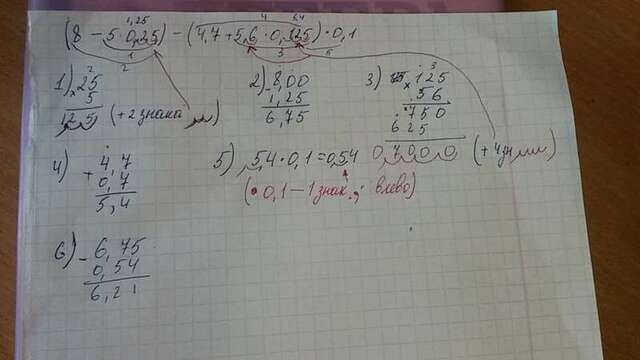 1,25 4 5,4
(8 - 5·0,25) - (4,7 + 5,6·0,125)·0,1
1 2 3 5
1) 25 × 5 = 125 (+2 знака)
2) 8,00 - 1,25 = 6,75
3) 125 × 56
750
625
0,7000 (+4 зн)
4) + 4,7
0,7
5,4
5) 5,4·0,1=0,54
(• 0,1 — 1 знак , влево)
6) - 6,75
0,54
6,21